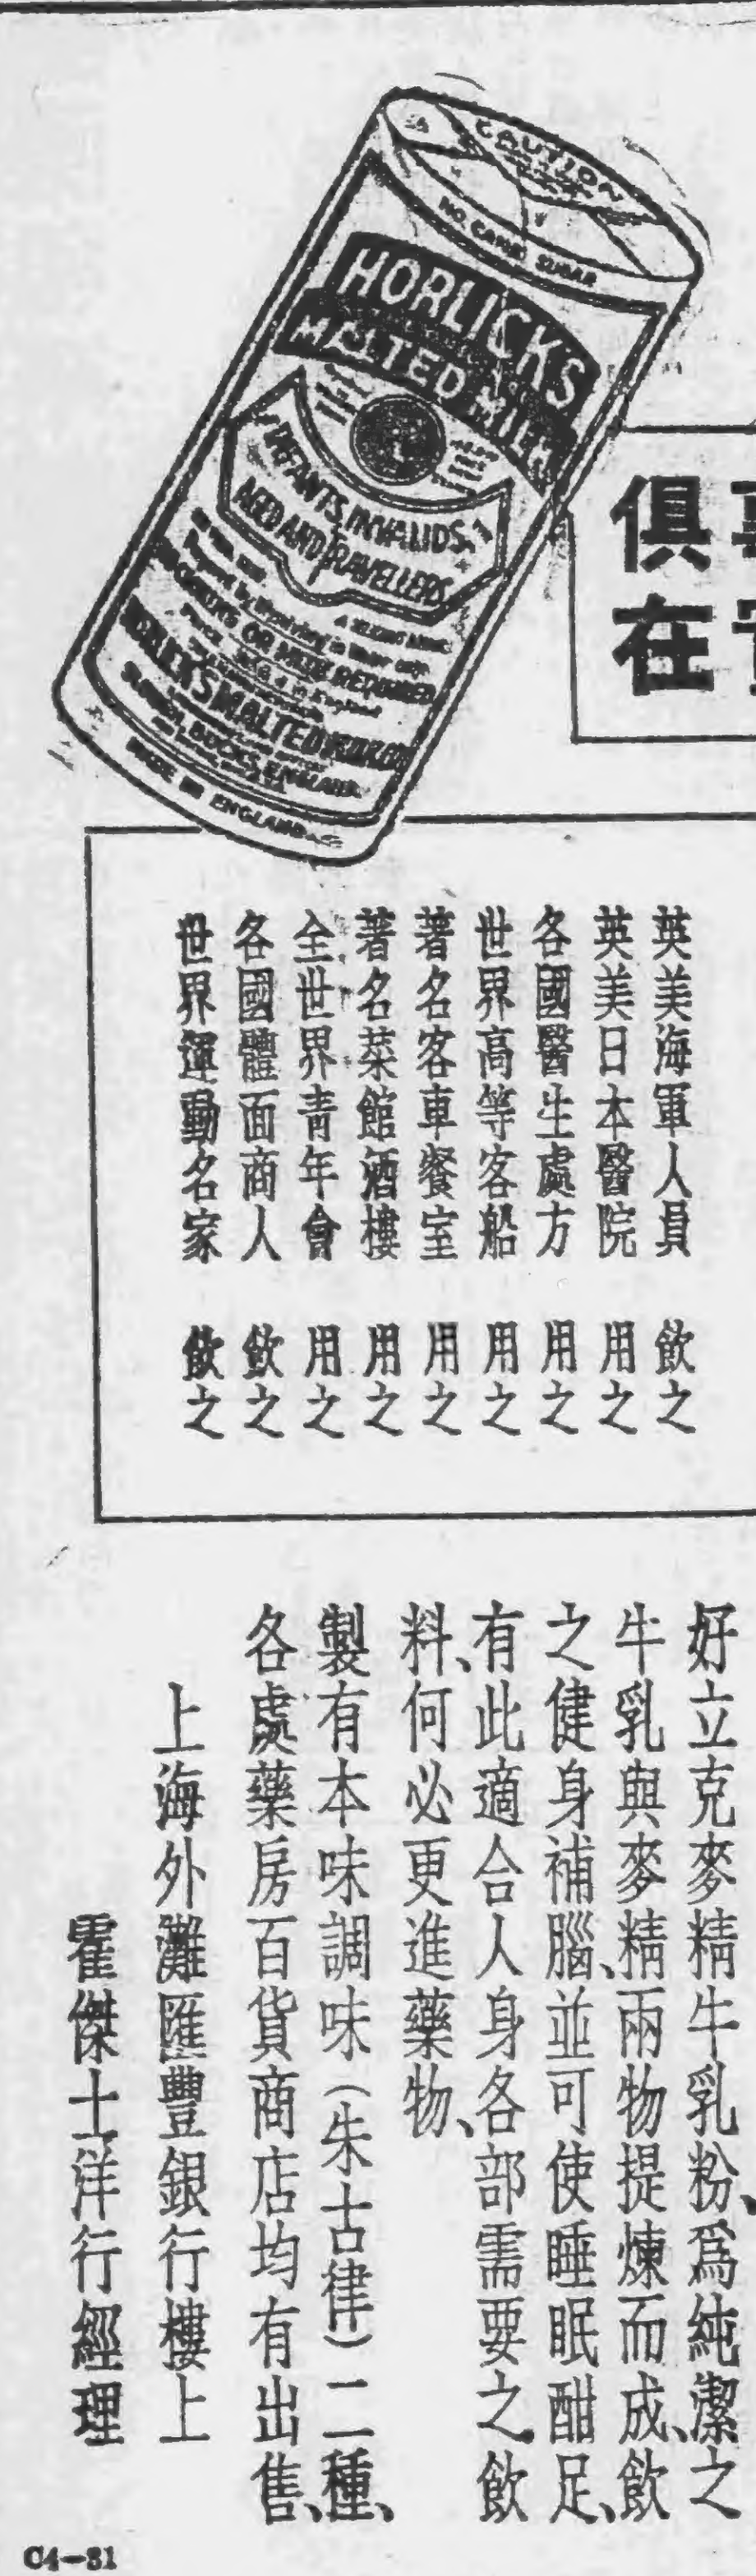 CAUTION
NO CANE SUGAR
HORLICKS
MALTED MILK
INFANTS, INVALIDS,
AGED AND TRAVELLERS
HORLICK'S MALTED MILK CO.
SLOUGH, BUCKS, ENGLAND.
MADE IN ENGLAND
俱在
英美海軍人員　飲之
英美日本醫院　用之
各國醫生處方　用之
世界高等客船　用之
著名客車餐室　用之
著名菜館酒樓　用之
全世界青年會　用之
各國體面商人　飲之
世界運動名家　飲之
好立克麥精牛乳粉、爲純潔之
牛乳與麥精兩物提煉而成、飲
之健身補腦、並可使睡眠酣足、
有此適合人身各部需要之飲
料、何必更進藥物、
製有本味調味（朱古律）二種、
各處藥房百貨商店均有出售、
上海外灘匯豐銀行樓上
霍傑士洋行經理
C4-31